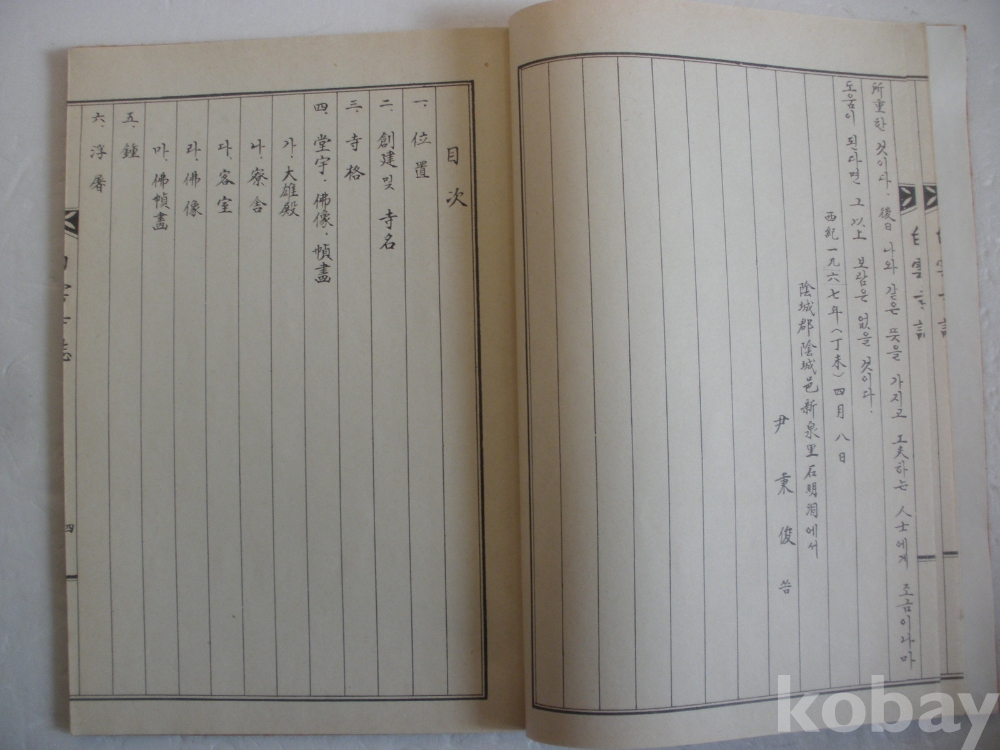 所重한 것이다. 後日 나와 같은 뜻을 가지고 工夫하는 人士에게 조금이라마
도움이 된다면 그 以上 보람은 없을 것이다.
西紀一九六七年(丁未)四月八日
陰城郡陰城邑新泉里石明洞에서
尹秉俊 씀
目次
一. 位置
二. 創建 및 寺名
三. 寺格
四. 堂宇·佛像·幀畵
가. 大雄殿
나. 寮舍
다. 客室
라. 佛像
마. 佛幀畵
五. 鍾
六. 浮屠
四
kobay